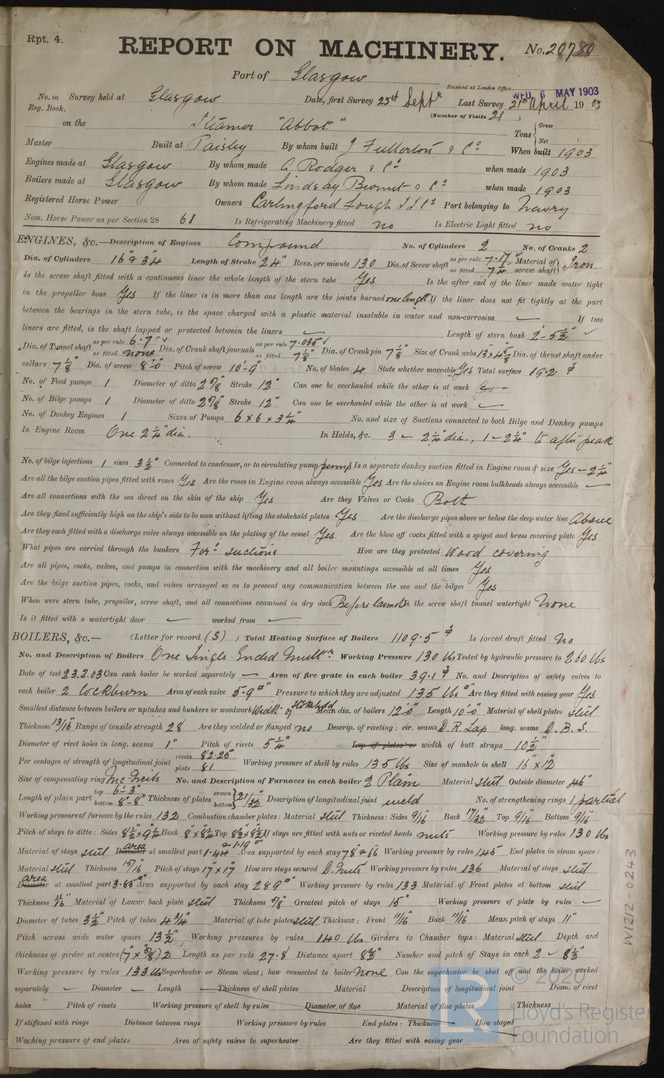 Rpt. 4.
REPORT ON MACHINERY. No. 20780
Port of Glasgow
Received at London Office WED. 6 MAY 1903
No. in Survey held at Glasgow Date, first Survey 25th Septr Last Survey 21st April 1903
Reg. Book. (Number of Visits 21)
on the Steamer "Abbot" Tons { Gross Net
Master Built at Paisley By whom built J Fullerton & Co When built 1903
Engines made at Glasgow By whom made A. Rodger & Co when made 1903
Boilers made at Glasgow By whom made Lindsay Burnet & Co when made 1903
Registered Horse Power Owners Carlingford Lough S S Co Port belonging to Newry
Nom. Horse Power as per Section 28 61 Is Refrigerating Machinery fitted no Is Electric Light fitted no
ENGINES, &c.—Description of Engines Compound No. of Cylinders 2 No. of Cranks 2
Dia. of Cylinders 16 & 34 Length of Stroke 24" Revs. per minute 130 Dia. of Screw shaft as per rule 7.17" as fitted 7¼" Material of screw shaft Iron
Is the screw shaft fitted with a continuous liner the whole length of the stern tube Yes Is the after end of the liner made water tight
in the propeller boss Yes If the liner is in more than one length are the joints burned one length If the liner does not fit tightly at the part
between the bearings in the stern tube, is the space charged with a plastic material insoluble in water and non-corrosive ✓ If two
liners are fitted, is the shaft lapped or protected between the liners ✓ Length of stern bush 2'-5½" ✓
Dia. of Tunnel shaft as per rule 6.7" as fitted none Dia. of Crank shaft journals as per rule 7.035" as fitted 7⅛" Dia. of Crank pin 7⅛" Size of Crank webs 13 x 4⅝ Dia. of thrust shaft under
collars 7⅛" Dia. of screw 8'-0 Pitch of screw 10'-9" No. of blades 4 State whether moveable Yes Total surface 19.2
No. of Feed pumps 1 Diameter of ditto 2⅞ Stroke 12" Can one be overhauled while the other is at work ✓
No. of Bilge pumps 1 Diameter of ditto 2⅞ Stroke 12" Can one be overhauled while the other is at work ✓
No. of Donkey Engines 1 Sizes of Pumps 6 x 6 x 3½" No. and size of Suctions connected to both Bilge and Donkey pumps
In Engine Room One 2¼" dia. In Holds, &c. 3 - 2¼" dia., 1 - 2¼" to after peak
No. of bilge injections 1 sizes 3½" Connected to condenser, or to circulating pump pump Is a separate donkey suction fitted in Engine room & size Yes - 2¼"
Are all the bilge suction pipes fitted with roses Yes Are the roses in Engine room always accessible Yes Are the sluices on Engine room bulkheads always accessible ✓
Are all connections with the sea direct on the skin of the ship Yes Are they Valves or Cocks Both
Are they fixed sufficiently high on the ship's side to be seen without lifting the stokehold plates Yes Are the discharge pipes above or below the deep water line Above
Are they each fitted with a discharge valve always accessible on the plating of the vessel Yes Are the blow off cocks fitted with a spigot and brass covering plate Yes
What pipes are carried through the bunkers Ford suctions How are they protected Wood covering
Are all pipes, cocks, valves, and pumps in connection with the machinery and all boiler mountings accessible at all times Yes
Are the bilge suction pipes, cocks, and valves arranged so as to prevent any communication between the sea and the bilges Yes
When were stern tube, propeller, screw shaft, and all connections examined in dry dock Before launch Is the screw shaft tunnel watertight None
Is it fitted with a watertight door ✓ worked from ✓
BOILERS, &c.— (Letter for record (S) ) Total Heating Surface of Boilers 1109.5 Is forced draft fitted No
No. and Description of Boilers One Single-Ended Multr Working Pressure 130 lbs Tested by hydraulic pressure to 260 lbs
Date of test 23.2.03 Can each boiler be worked separately ✓ Area of fire grate in each boiler 39.1 No. and Description of safety valves to
each boiler 2 Cockburn Area of each valve 5.9" Pressure to which they are adjusted 135 lbs Are they fitted with easing gear Yes
Smallest distance between boilers or uptakes and bunkers or woodwork Width of stokehold Mean dia. of boilers 12'-0 Length 10'-0 Material of shell plates steel
Thickness 13/16 Range of tensile strength 28 Are they welded or flanged no Descrip. of riveting: cir. seams D.R Lap long. seams D.B.S.
Diameter of rivet holes in long. seams 1" Pitch of rivets 5¼" Lap of plates or width of butt straps 10½"
Per centages of strength of longitudinal joint rivets 82.25 plate 81 Working pressure of shell by rules 135 lbs Size of manhole in shell 16" x 12"
Size of compensating ring McNeils No. and Description of Furnaces in each boiler 2 Plain Material steel Outside diameter 46"
Length of plain part top 6'-3" bottom 8'-8" Thickness of plates crown bottom 21/32 Description of longitudinal joint weld No. of strengthening rings 1 partial
Working pressure of furnace by the rules 132 Combustion chamber plates: Material steel Thickness: Sides 9/16 Back 17/32 Top 9/16 Bottom 9/16
Pitch of stays to ditto: Sides 8½ x 9¼ Back 8" x 8¾ Top 8½ x 8½ If stays are fitted with nuts or riveted heads nuts Working pressure by rules 130 lbs
Material of stays steel area Diameter at smallest part 1.44 & 1.19 Area supported by each stay 78 & 66 Working pressure by rules 145 End plates in steam space:
Material steel Thickness 15/16 Pitch of stays 17" x 17" How are stays secured D. Nuts Working pressure by rules 136 Material of stays steel
area Diameter at smallest part 3.85 Area supported by each stay 289 Working pressure by rules 133 Material of Front plates at bottom steel
Thickness 11/16 Material of Lower back plate steel Thickness ⅞ Greatest pitch of stays 15" Working pressure of plate by rules ✓
Diameter of tubes 3½" Pitch of tubes 4¾" Material of tube plates steel Thickness: Front 11/16 Back 11/16 Mean pitch of stays 11"
Pitch across wide water spaces 13½" Working pressures by rules 140 lbs Girders to Chamber tops: Material steel Depth and
thickness of girder at centre (7 x ⅝) 2 Length as per rule 27.8 Distance apart 8½ Number and pitch of Stays in each 2 - 8½
Working pressure by rules 133 lbs Superheater or Steam chest; how connected to boiler None Can the superheater be shut off and the boiler worked
separately ✓ Diameter Length Thickness of shell plates Material Description of longitudinal joint Diam. of rivet
holes Pitch of rivets Working pressure of shell by rules Diameter of flue Material of flue plates Thickness
If stiffened with rings Distance between rings Working pressure by rules End plates: Thickness How stayed
Working pressure of end plates Area of safety valves to superheater Are they fitted with easing gear
W1212-0243
© 2020
Lloyd's Register
Foundation